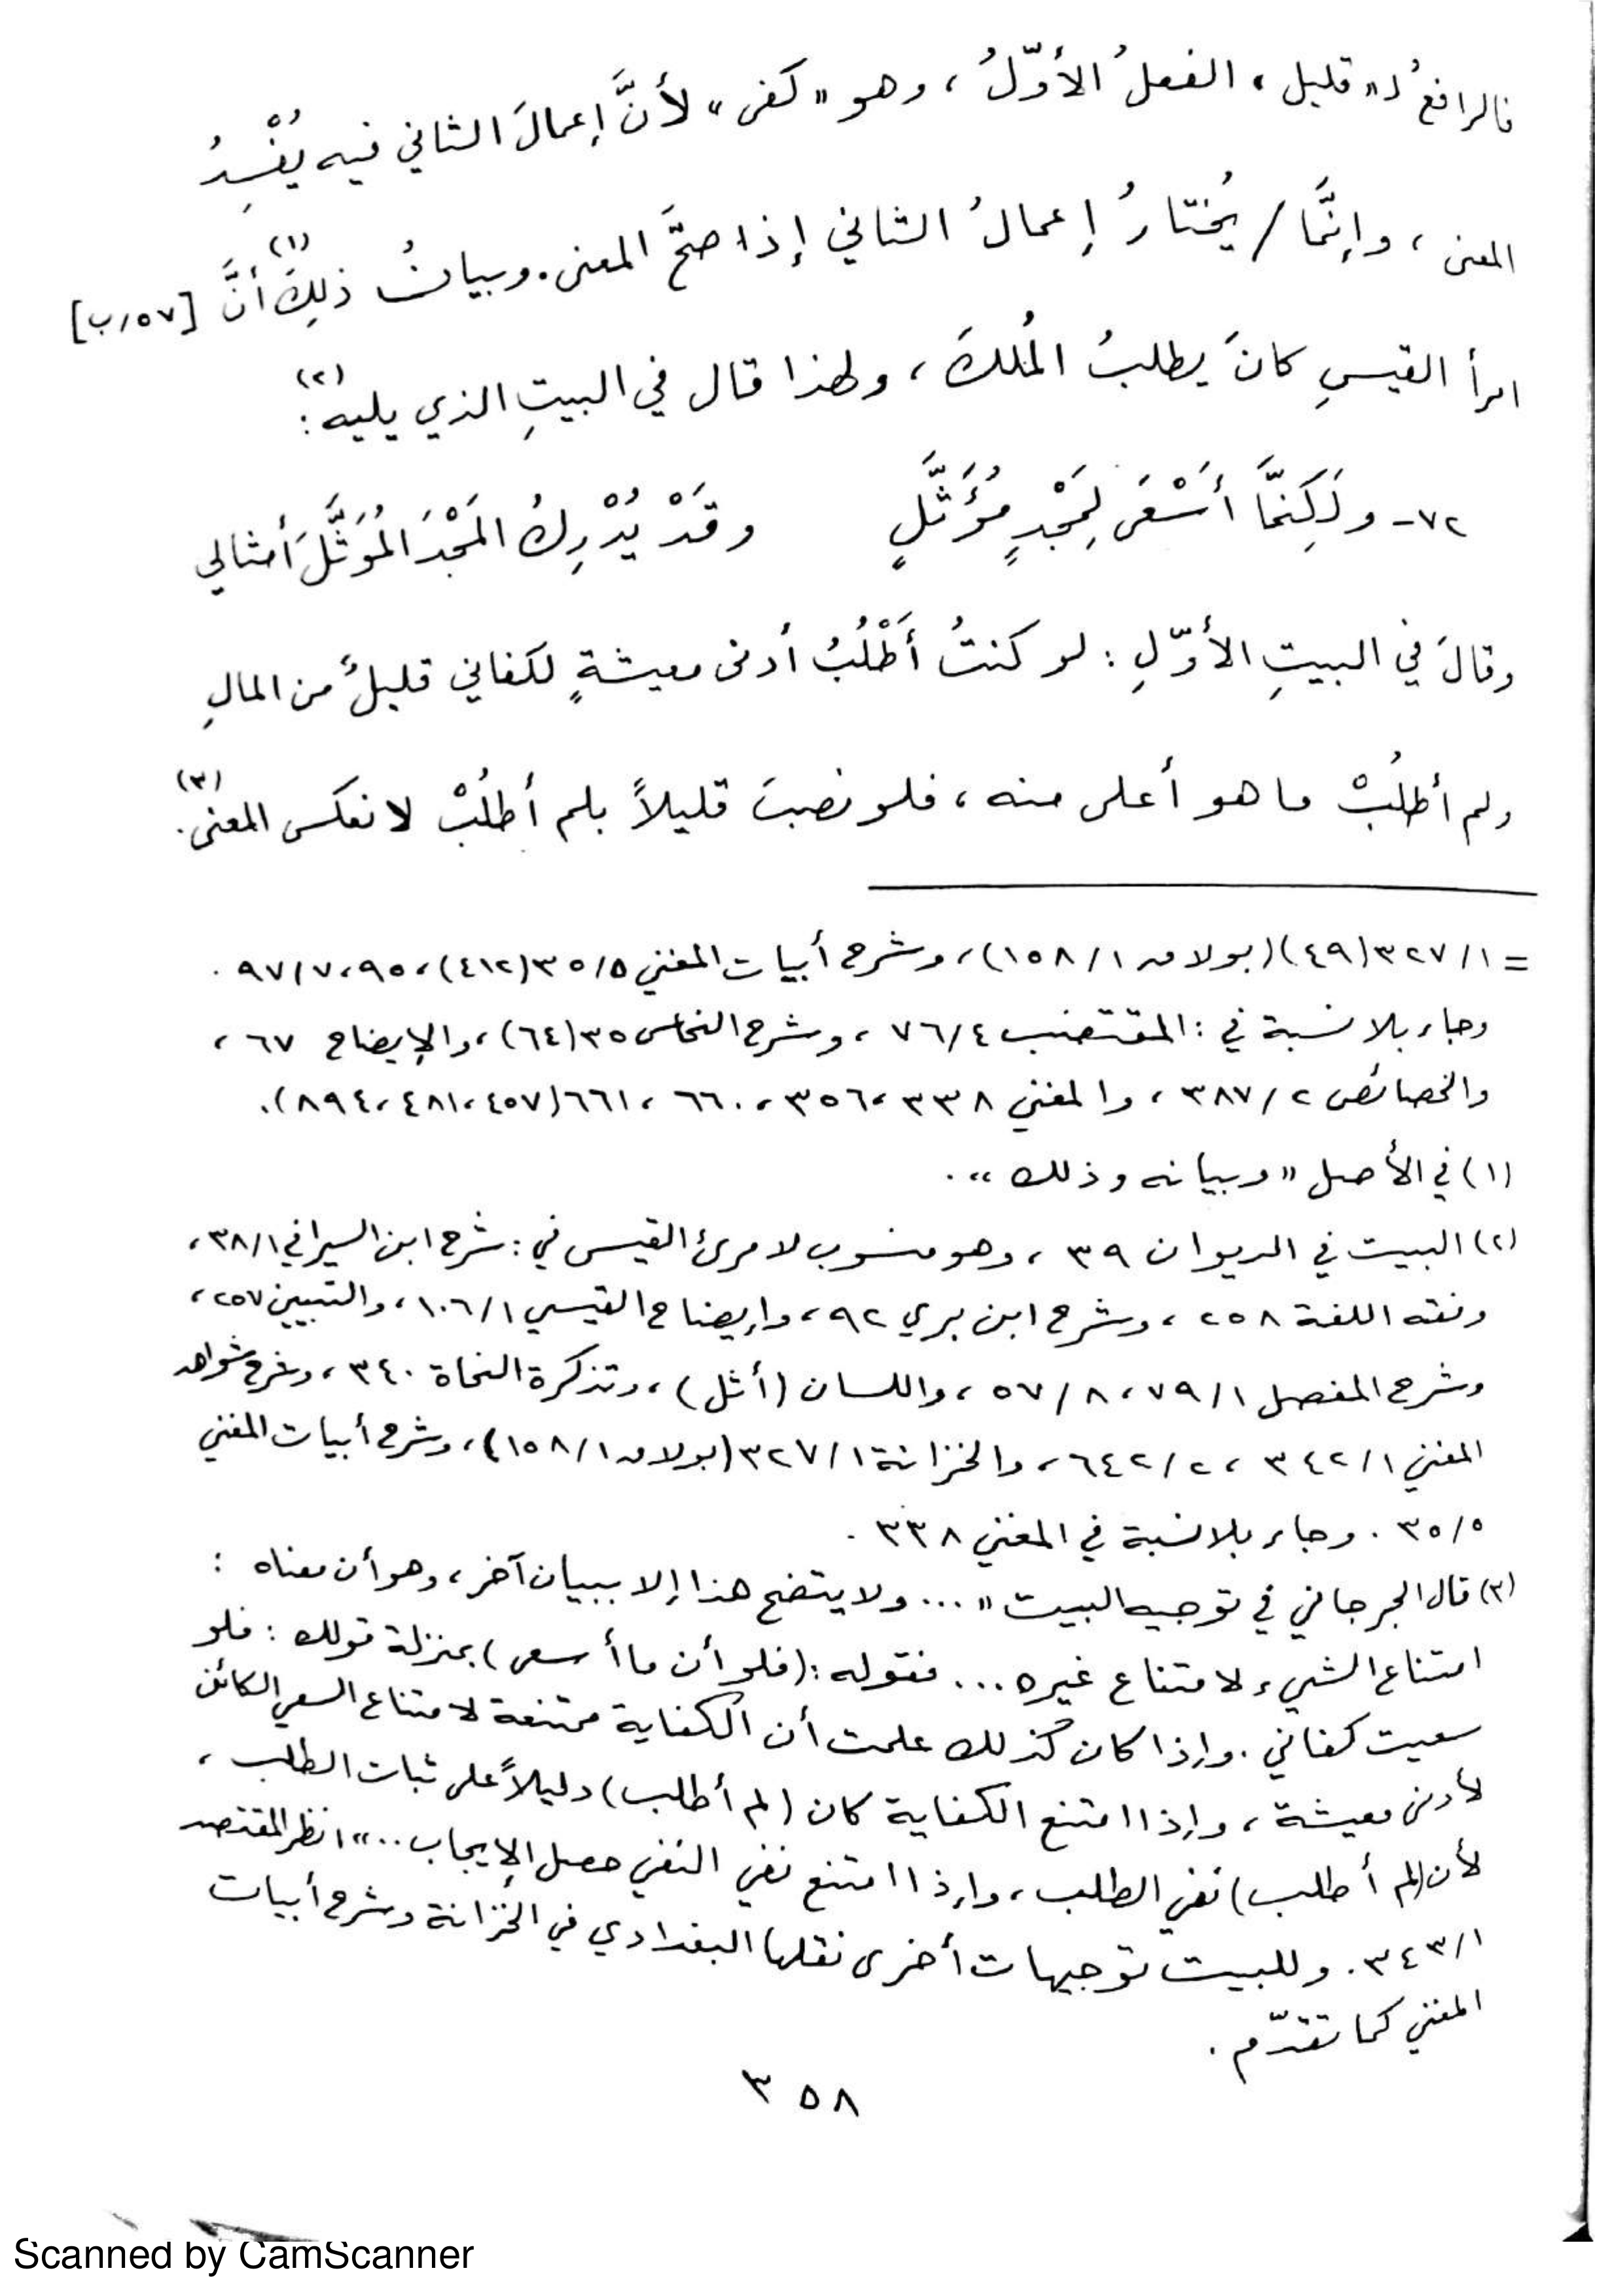 فالرافعُ لـ «قليل» الفعلُ الأوّلُ، وهو «كفى» لأنَّ إعمالَ الثاني فيه يُفْسِدُ
المعنى، وإنَّما / يُختارُ إعمالُ الثاني إذا صحَّ المعنى. وبيانُ ذلِكَ(١) أنَّ [٥٧/ب]
امرأ القيسِ كانَ يطلبُ المُلكَ، ولهذا قال في البيتِ الذي يليه(٢):
٧٢- ولَكِنَّمَا أَسْعَى لِمَجْدٍ مُؤَثَّلٍ وقَدْ يُدْرِكُ المَجْدَ المُؤَثَّلَ أمثالي
وقالَ في البيتِ الأوّلِ: لو كنتُ أَطْلُبُ أدنى معيشةٍ لكفاني قليلٌ من المالِ
ولم أطلُبْ ما هو أعلى منه، فلو نصبتَ قليلاً بلم أطلُبْ لانعكس المعنى(٣).
= ٣٢٧/١(٤٩)(بولاق ١٥٨/١)، وشرح أبيات المغني ٣٥/٥(٤١٢)، ٩٥، ٩٧/٧.
وجاء بلا نسبة في: المقتضب ٧٦/٤، وشرح النحاس ٣٥(٦٤)، والإيضاح ٦٧،
والخصائص ٣٨٧/٢، والمغني ٣٣٨، ٣٥٦، ٦٦٠، ٦٦١(٤٥٧، ٤٨١، ٨٩٤).
(١) في الأصل «وبيانه وذلك».
(٢) البيت في الديوان ٣٩، وهو منسوب لامرئ القيس في: شرح ابن السيرافي ٣٨/١،
وفقه اللغة ٢٥٨، وشرح ابن بري ٩٢، وإيضاح القيسي ١٠٦/١، والتبيين ٢٥٧،
وشرح المفصل ٧٩/١، ٥٧/٨، واللسان (أثل)، وتذكرة النحاة ٣٤٠، وشرح شواهد
المغني ٣٤٢/١، ٦٤٢/٢، والخزانة ٣٢٧/١(بولاق ١٥٨/١)، وشرح أبيات المغني
٣٥/٥. وجاء بلا نسبة في المغني ٣٣٨.
(٣) قال الجرجاني في توجيه البيت «... ولا يتضح هذا إلا ببيان آخر، وهو أن معناه:
امتناع الشيء لامتناع غيره... فقوله: (فلو أن ما أسعى) بمنزلة قولك: فلو
سعيت كفاني. وإذا كان كذلك علمت أن الكفاية ممتنعة لامتناع السعي الكائن
لأدنى معيشة، وإذا امتنع الكفاية كان (لم أطلب) دليلاً على ثبات الطلب،
لأن (لم أطلب) نفي الطلب، وإذا امتنع نفي النفي حصل الإيجاب..» انظر المقتصد
٣٤٣/١. وللبيت توجيهات أخرى نقلها البغدادي في الخزانة وشرح أبيات
المغني كما تقدّم.
٣٥٨
Scanned by CamScanner